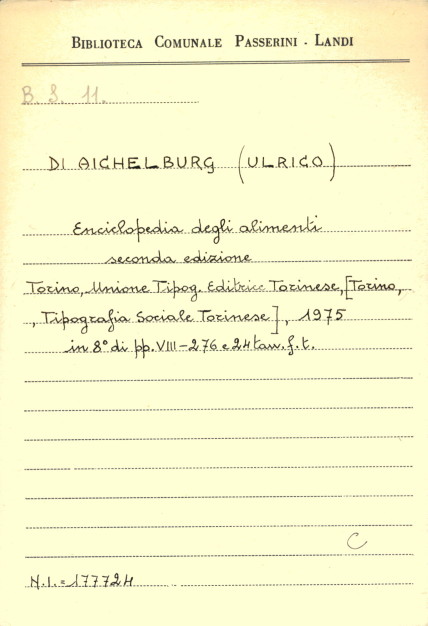 BIBLIOTECA COMUNALE PASSERINI - LANDI
B. S. 11.
DI AICHELBURG (ULRICO)
Enciclopedia degli alimenti
seconda edizione
Torino, Unione Tipog. Editrice Torinese, [Torino,
, Tipografia Sociale Torinese], 1975
in 8° di pp. VIII-276 e 24 tav. f. t.
C
N.I. = 177724